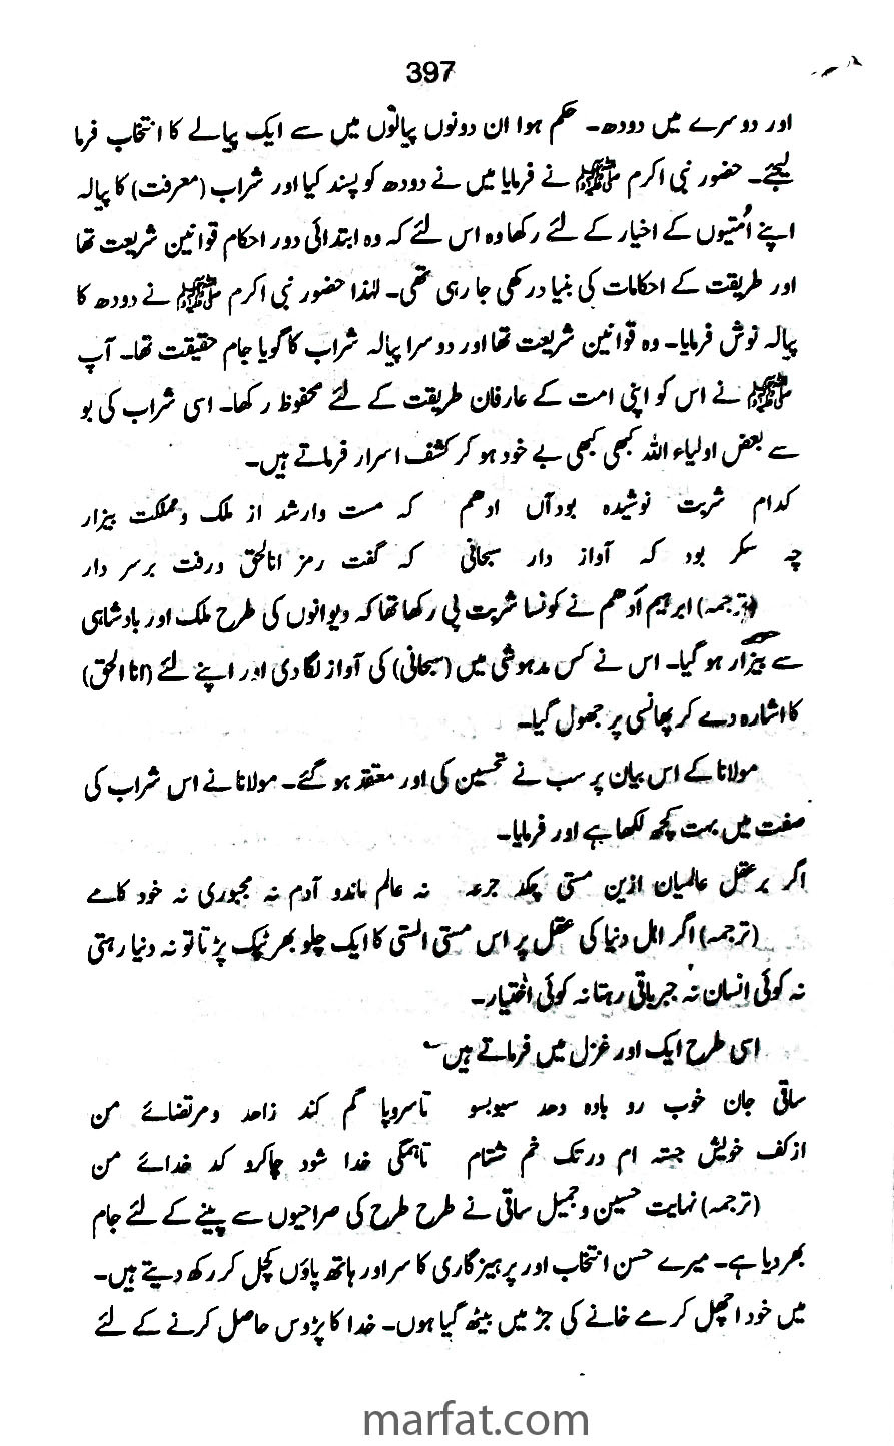 397
اور دوسرے میں دودھ۔ حکم ہوا ان دونوں پیالوں میں سے ایک پیالے کا انتخاب فرما
لیجئے۔ حضور نبی اکرم ﷺ نے فرمایا میں نے دودھ کو پسند کیا اور شراب (معرفت) کا پیالہ
اپنے اُمتیوں کے اخیار کے لئے رکھا وہ اس لئے کہ وہ ابتدائی دور احکام قوانین شریعت تھا
اور طریقت کے احکامات کی بنیاد رکھی جا رہی تھی۔ لہٰذا حضور نبی اکرم ﷺ نے دودھ کا
پیالہ نوش فرمایا۔ وہ قوانین شریعت تھا اور دوسرا پیالہ شراب کا گویا جام حقیقت تھا۔ آپ
ﷺ نے اس کو اپنی امت کے عارفان طریقت کے لئے محفوظ رکھا۔ اسی شراب کی بو
سے بعض اولیاء اللہ کبھی کبھی بے خود ہو کر کشف اسرار فرماتے ہیں۔
کدام شربت نوشیدہ بود آں ادھم کہ مست وارشد از ملک و مملکت بیزار
چہ سکر بود کہ آواز دار سبحانی کہ گفت رمز اناالحق ورفت برسر دار
(ترجمہ) ابرہیم اَدھم نے کونسا شربت پی رکھا تھا کہ دیوانوں کی طرح ملک اور بادشاہی
سے بیزار ہو گیا۔ اس نے کس مدہوشی میں (سبحانی) کی آواز لگا دی اور اپنے لئے (انا الحق)
کا اشارہ دے کر پھانسی پر جھول گیا۔
مولانا کے اس بیان پر سب نے تحسین کی اور معتقد ہو گئے۔ مولانا نے اس شراب کی
صفت میں بہت کچھ لکھا ہے اور فرمایا۔
اگر برعقل عالمیان ازین مستی چکد جرعہ نہ عالم ماندو آدم نہ مجبوری نہ خود کامے
(ترجمہ) اگر اہل دنیا کی عقل پر اس مستی الستی کا ایک چلو بھر ٹپک پڑتا تو نہ دنیا رہتی
نہ کوئی انسان نہ جبر باقی رہتا نہ کوئی اختیار۔
اسی طرح ایک اور غزل میں فرماتے ہیں
ساقی جان خوب رو بادہ دھد سبوبسو تاسروپا گم کند زاھد ومرتضائے من
ازکف خویش جستہ ام درتک خم شتام تاہمگی خدا شود چاکرو کد خدائے من
(ترجمہ) نہایت حسین و جمیل ساقی نے طرح طرح کی صراحیوں سے پینے کے لئے جام
بھر دیا ہے۔ میرے حسن انتخاب اور پرہیزگاری کا سر اور ہاتھ پاؤں کچل کر رکھ دیتے ہیں۔
میں خود اچھل کر مے خانے کی جڑ میں بیٹھ گیا ہوں۔ خدا کا پڑوس حاصل کرنے کے لئے
marfat.com